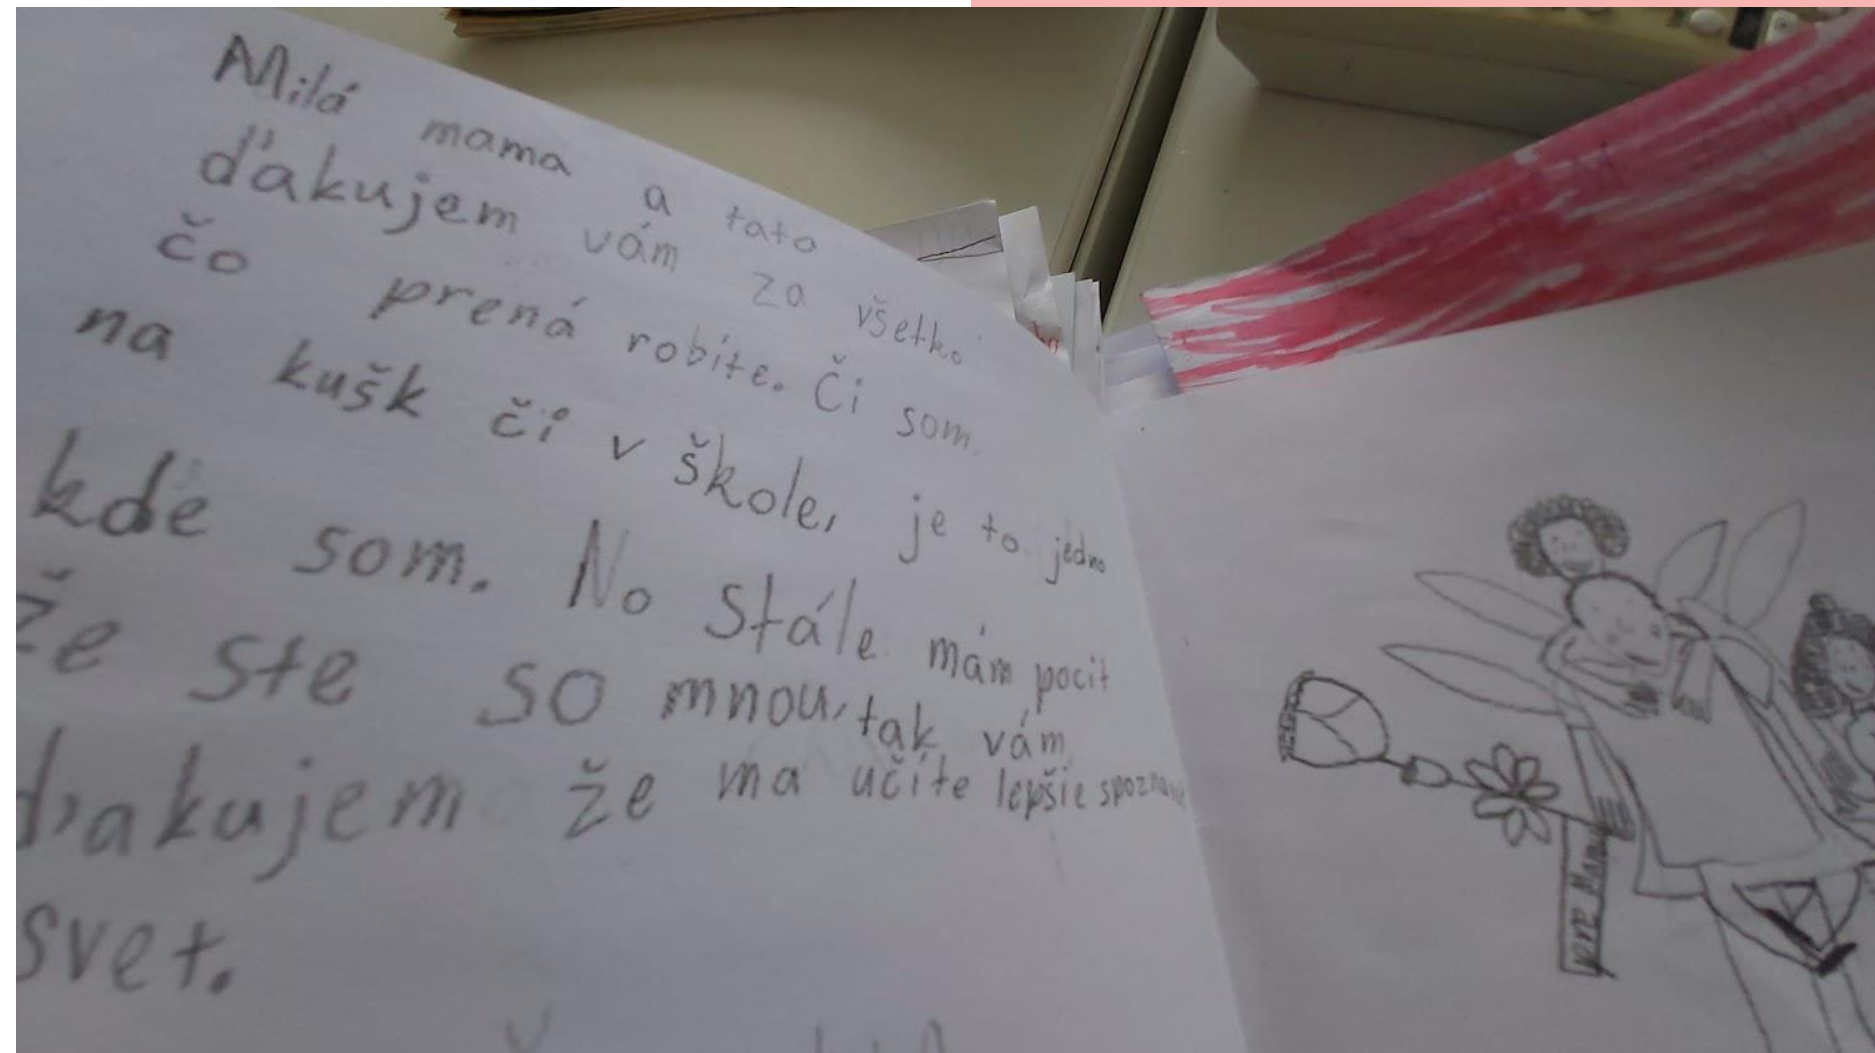 Milá mama a tato
ďakujem vám za všetko
čo prená robíte. Či som.
na kušk či v škole, je to jedno
kde som. No stále mám pocit
že ste so mnou, tak vám
ďakujem že ma učíte lepšie
svet.
pre Mamu